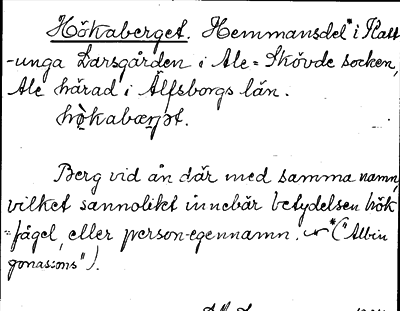 Hökaberget. Hemmansdel* i Katt-
-unga Larsgården i Ale-Skövde socken,
Ale härad i Älfsborgs län.
hökabærjət.
Berg vid ån där med samma namn,
vilket sannolikt innebär betydelsen hök
=fågel, eller person-egennamn. *("Albin
Jonassons").